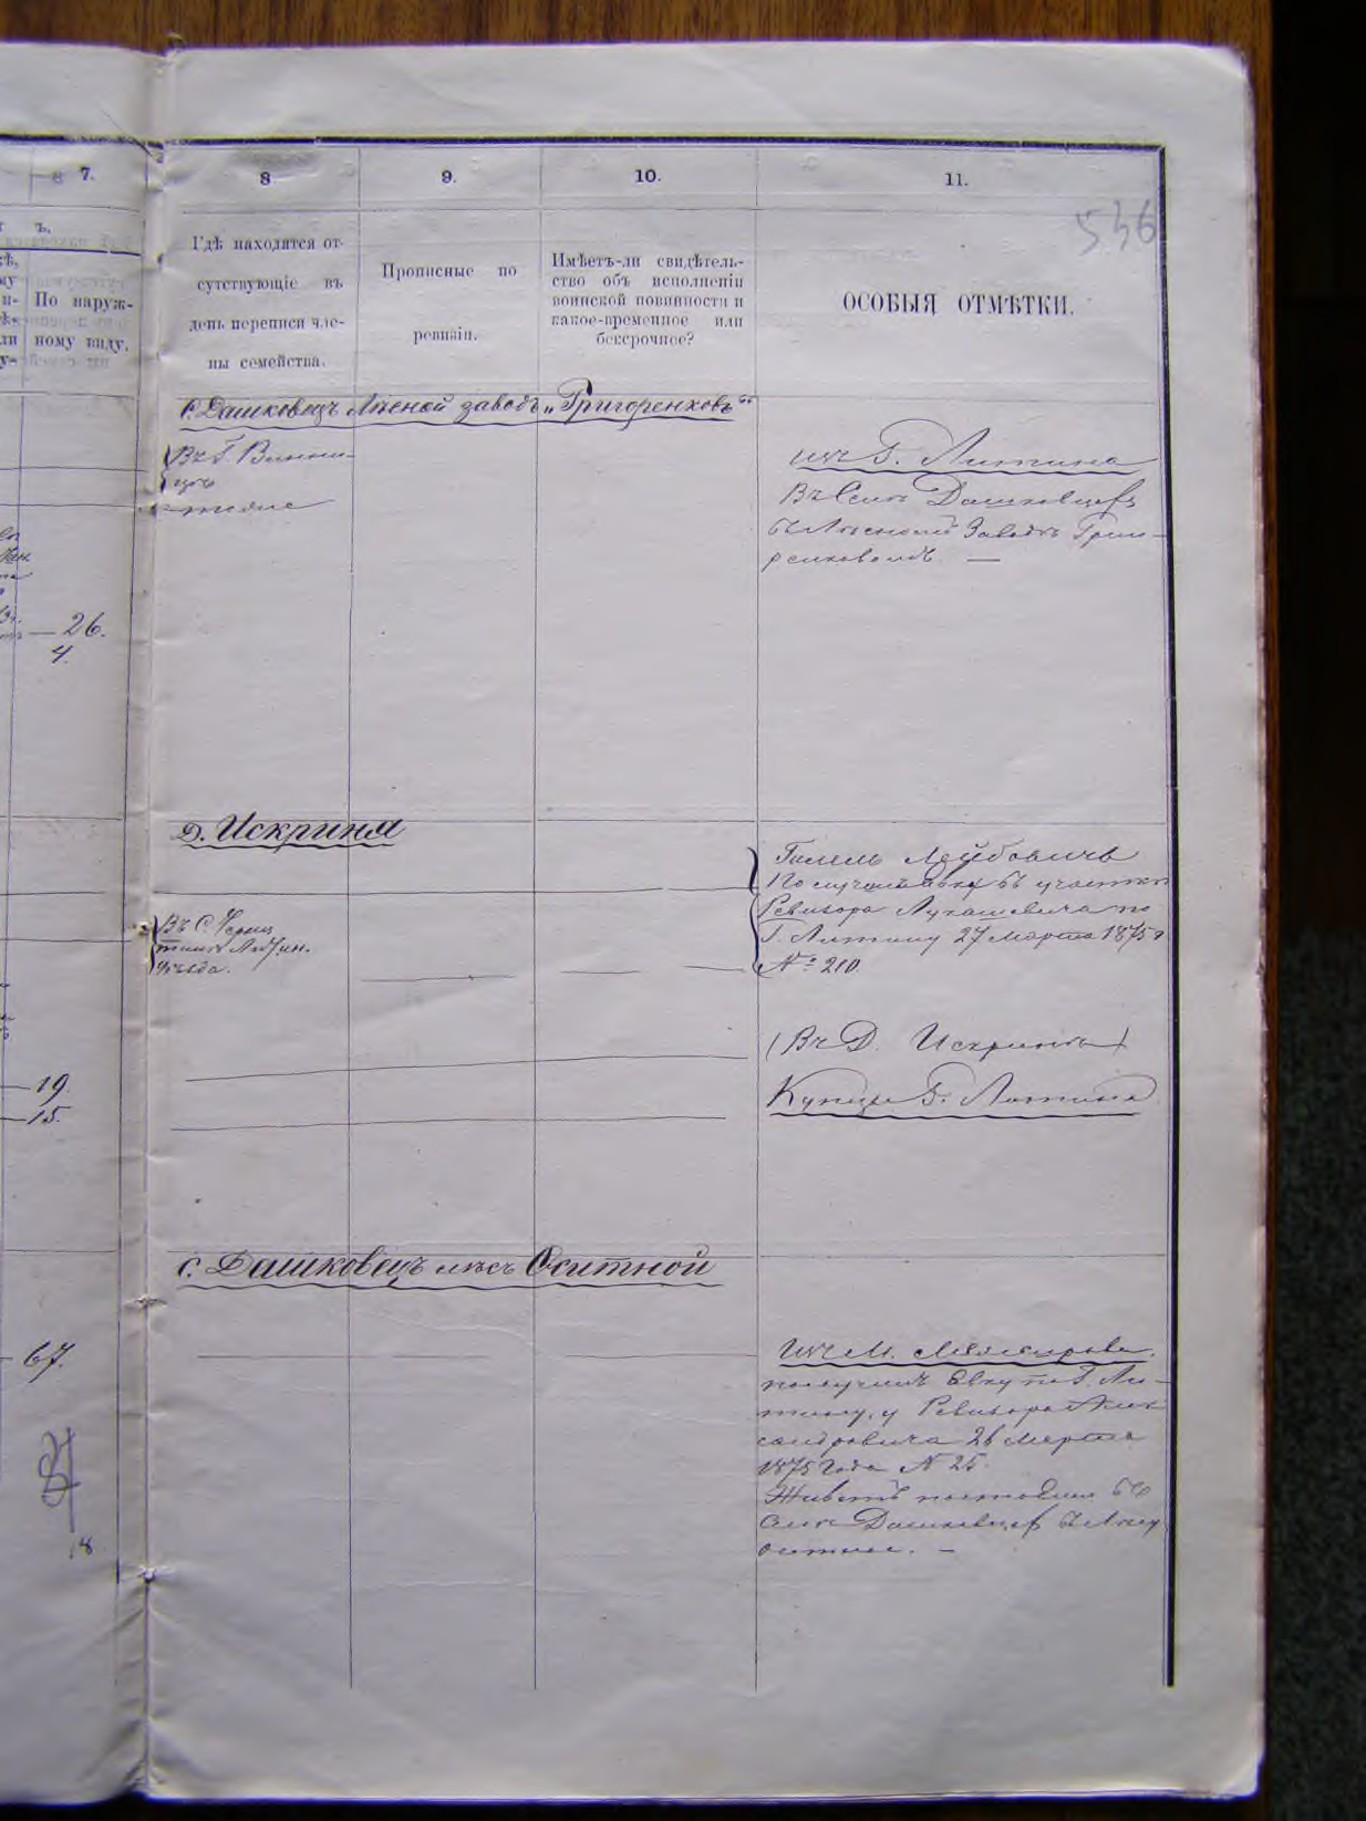 7.
8
9.
10.
11.
536
По наруж-
ному виду.
Гдѣ находятся от-
сутствующіе въ
день переписи чле-
ны семейства.
Прописные по
ревизіи.
Имѣетъ-ли свидѣтель-
ство объ исполненіи
воинской повинности и
какое-временное или
безсрочное?
ОСОБЫЯ ОТМѢТКИ.
С. Дашковецъ Лѣсной заводъ „Григоренковъ“
Въ Г. Винни-
цѣ
тоже
изъ Г. Литина
Въ Селѣ Дашковцахъ
въ Лѣсномъ Заводѣ Григо-
ренковомъ —
— 26.
4.
Д. Искриня
Лейбовичъ
въ участкѣ
Ревизора Лукашевича по
Г. Литину 27 Марта 1875 г
№ 210.
Въ С.
уѣзда.
(Въ Д. Искринѣ)
Купцы Г. Литина
— 19.
— 15.
С. Дашковецъ лѣсъ Оситной
— 67.
Изъ М.
получилъ по Г. Ли-
тину, у Ревизора Алек
сандровича 26 Марта
1875 Года № 25.
Живетъ въ
Селѣ Дашковцахъ въ Лѣсу
Оситное. —